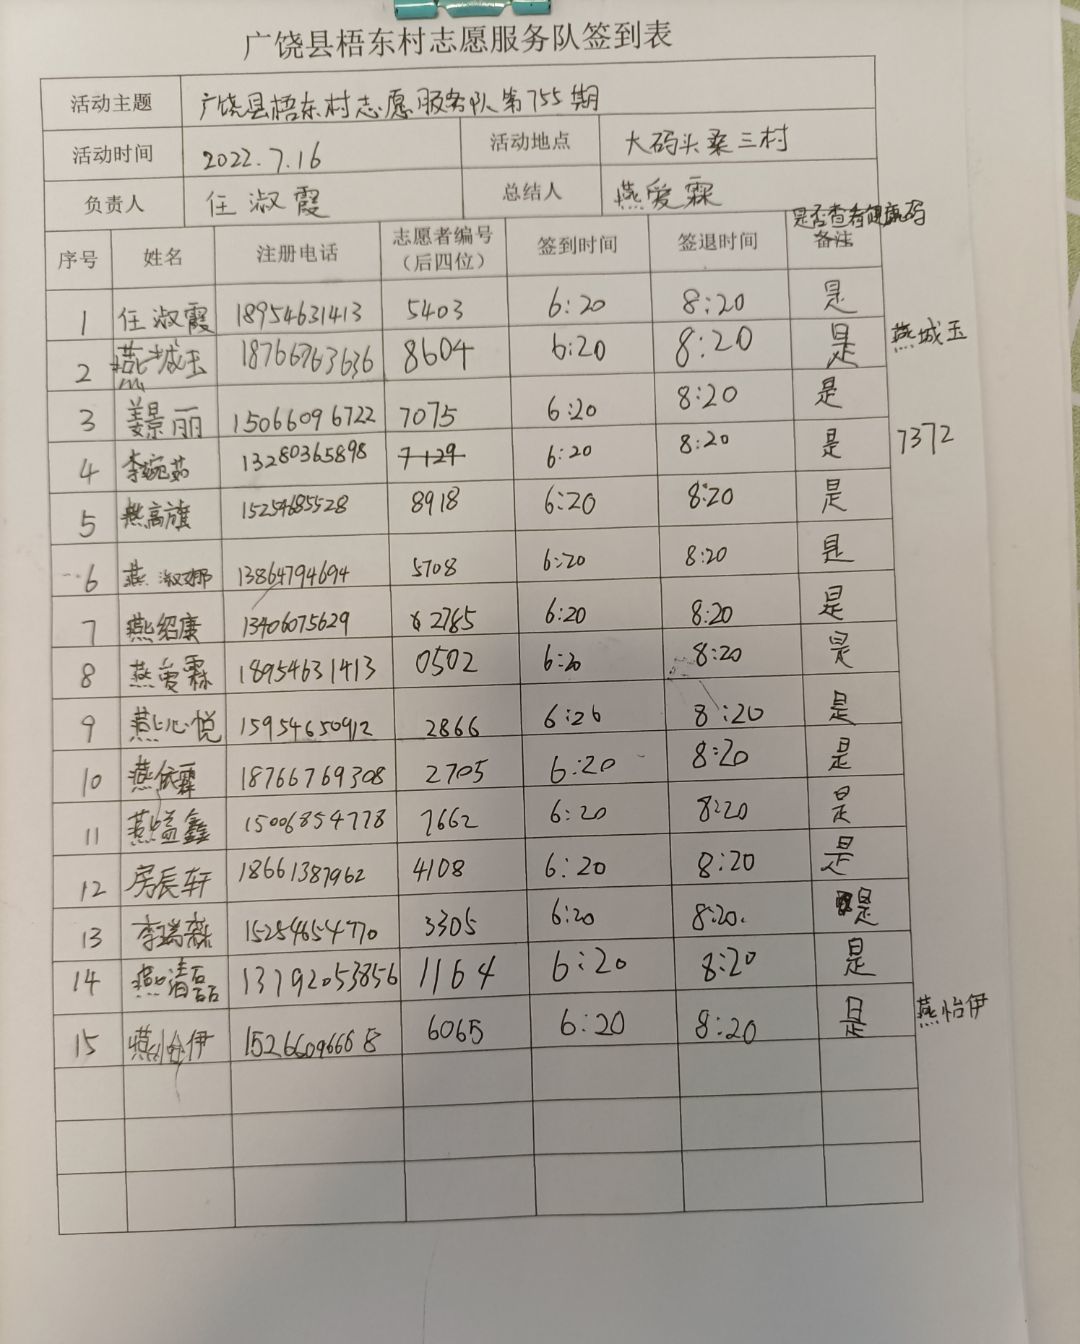 广饶县梧东村志愿服务队签到表
活动主题 广饶县梧东村志愿服务队第755期
活动时间 2022.7.16 活动地点 大码头桑三村
负责人 任淑霞 总结人 燕爱霖
是否查看健康码
序号 姓名 注册电话 志愿者编号（后四位） 签到时间 签退时间 备注
1 任淑霞 18954631413 5403 6:20 8:20 是
2 燕城玉 18766763636 8604 6:20 8:20 是 燕城玉
3 姜景丽 15066096722 7075 6:20 8:20 是
4 李婉茹 13280365898 7129 6:20 8:20 是 7372
5 燕高旗 15254685528 8918 6:20 8:20 是
6 燕淑娜 13864794694 5708 6:20 8:20 是
7 燕绍康 13406075629 2785 6:20 8:20 是
8 燕爱霖 18954631413 0502 6:20 8:20 是
9 燕心悦 15954650912 2866 6:20 8:20 是
10 燕依霏 18766769308 2705 6:20 8:20 是
11 燕益鑫 15006854778 7662 6:20 8:20 是
12 房辰轩 18661387962 4108 6:20 8:20 是
13 李瑞森 15254654770 3305 6:20 8:20. 是
14 燕清磊 13792053856 1164 6:20 8:20 是
15 燕怡伊 15266096668 6065 6:20 8:20 是 燕怡伊